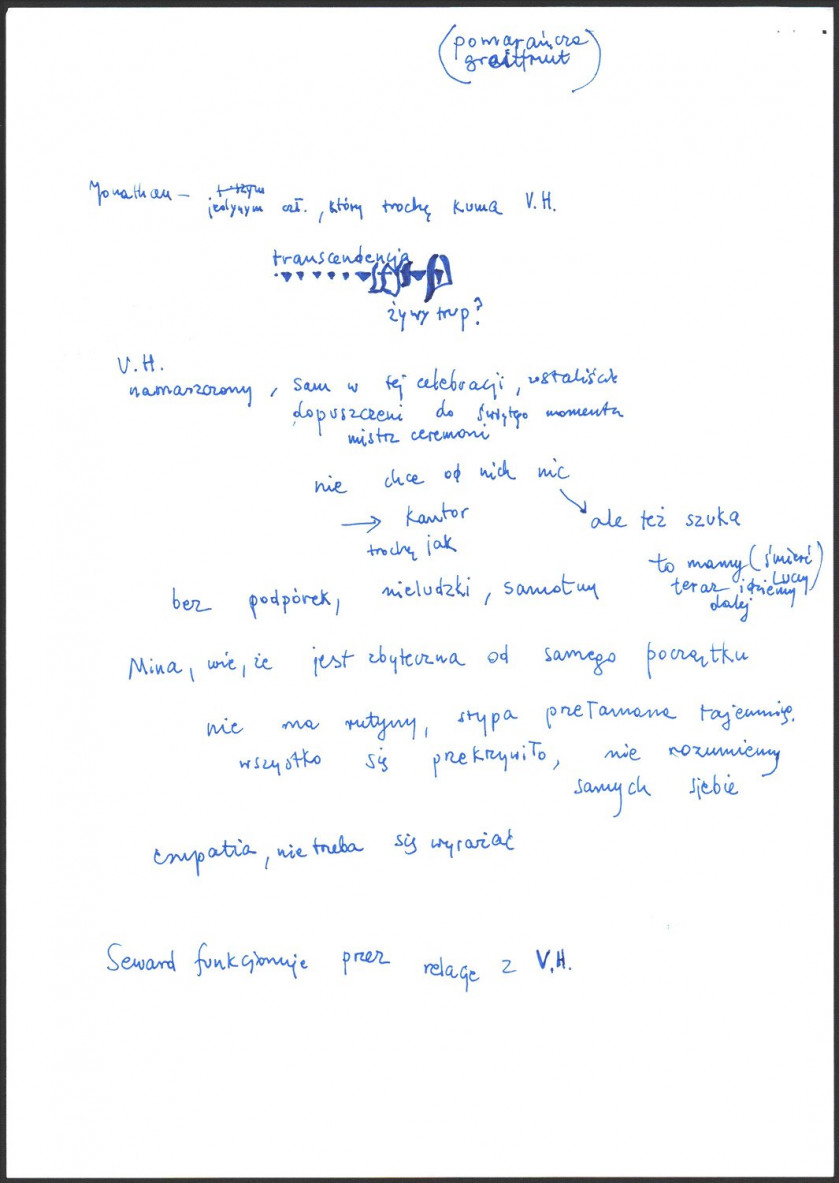 (pomarańcze
graitfruit)
Jonathan – jedynym czł., który trochę kuma V.H.
transcendencja
żywy trup?
V.H.
namaszczony, sam w tej celebracji, zostaliście
dopuszczeni do świętego momentu
mistrz ceremonii
nie chce od nich nic
→ kantor
trochę jak
ale też szuka
to mamy (śmierć Lucy)
teraz idziemy
dalej
bez podpórek, nieludzki, samotny
Mina, wie, że jest zbyteczna od samego początku
nie ma rutyny, stypa przełamana tajemnicą.
wszystko się przekrzywiło, nie rozumiemy
samych siebie
empatia, nie treba się wyrażać
Seward funkcjonuje przez relację z V.H.